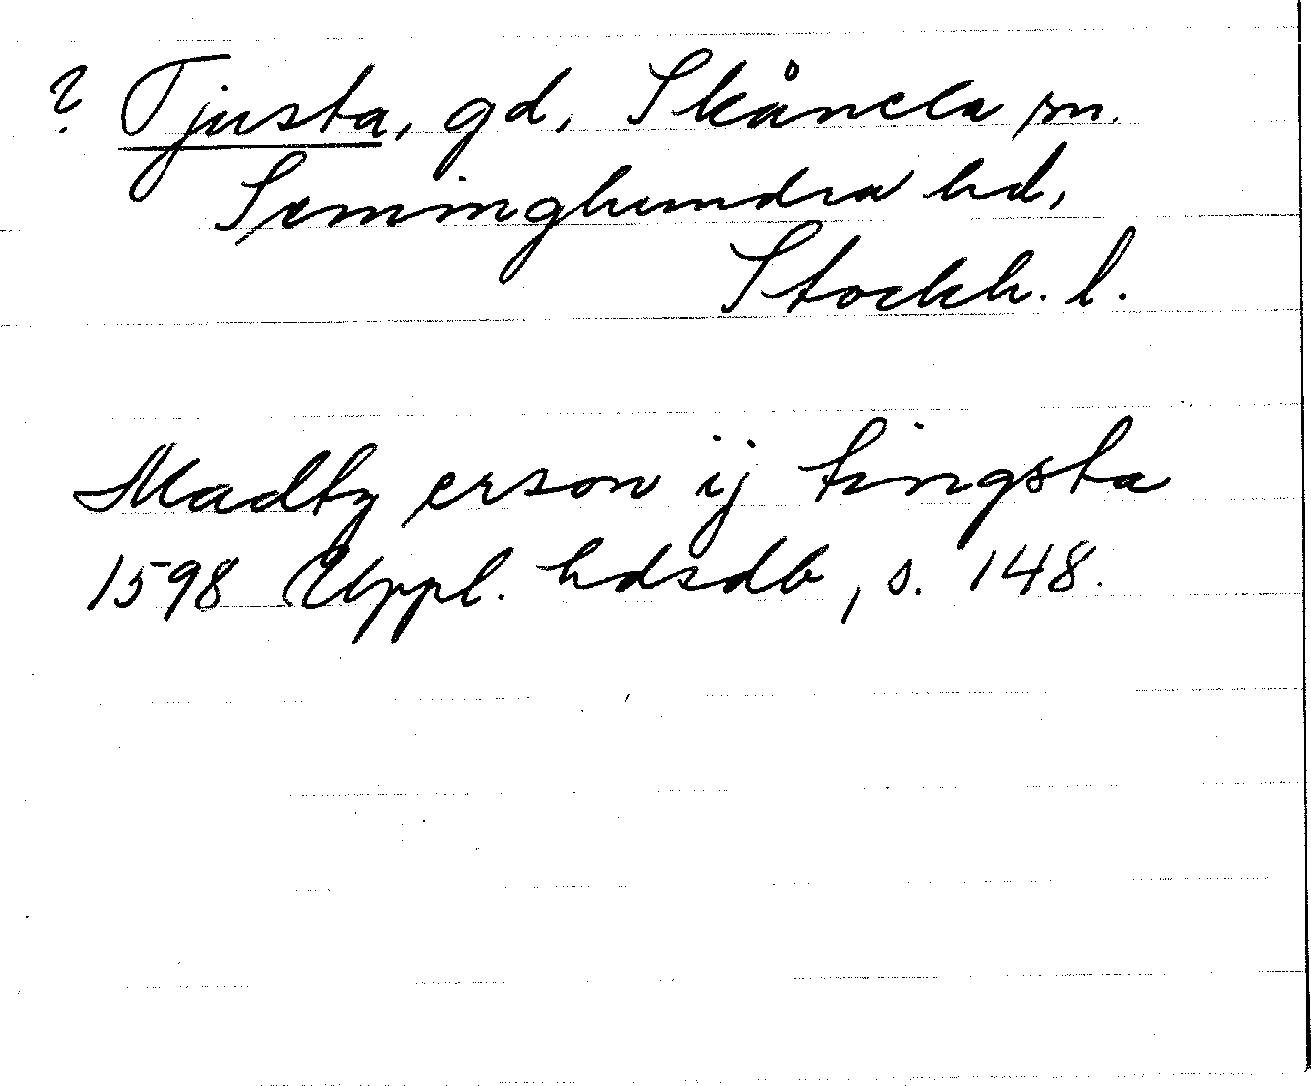 ? Tjusta, gd, Skånela sn.
Seminghundra hd,
Stockh. l.
Madtz erson ij tingsta
1598 Uppl. hdsdb, s. 148.